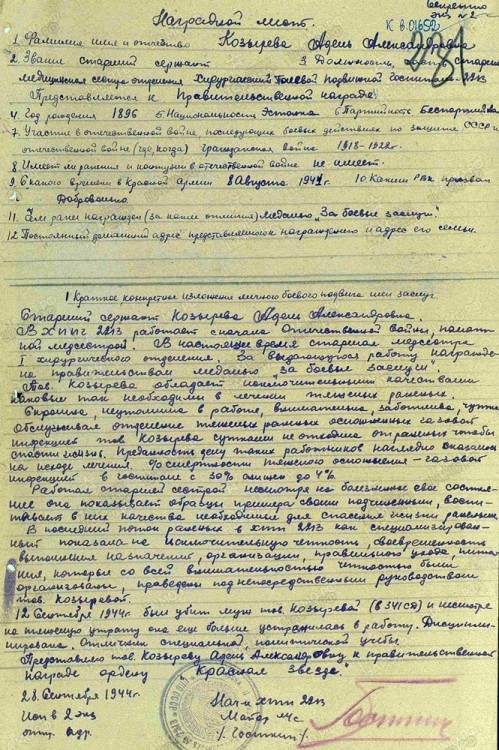 Секретно
экз №2
К в.01652
Наградной лист.
1. Фамилия имя и отчество Козырева Адель Александровна
2. Звание старший сержант 3 Должность, часть старшая
медицинская сестра отделения Хирургический Полевой подвижной Госпиталь 2213
Представляется к Правительственной награде
4. Год рождения 1896 5. Национальность Эстонка 6 Партийность Беспартийная
7. Участие в отечественной войне, последующих боевых действиях по защите СССР и
отечественной войне (где, когда) гражданская война 1918-1922г.
8 Имеет ли ранения и контузии в отечественной войне не имеет.
9 С какого времени в Красной армии 8 Августа 1941 г 10. Каким РВК призван
Добровольно.
11. Чем ранее награжден (за какие отличия) Медалью "За боевые заслуги".
12 Постоянный домашний адрес представляемого к награждению и адрес его семьи.
1 Краткое конкретное изложение личного боевого подвига или заслуг.
Старший сержант Козырева Адель Александровна.
В ХППГ 2213 работает с начала Отечественной войны, палат-
ной медсестрой. В настоящее время старшая медсестра
I хирургического отделения. За выдающуюся работу награжде-
на правительством медалью "За боевые заслуги".
Тов. Козырева обладает исключительными качествами
которые так необходимы в лечении тяжелых раненых.
Скромна, неутомима в работе, внимательна, заботлива, чутка
Обслуживая отделение тяжелых раненых осложненных газовой
инфекцией тов Козырева сутками не отходила от раненых чтобы
спасти жизнь. Преданность делу таких работников наглядно сказалась
на исходе лечения. % смертности тяжелого осложнения - газовой
инфекцией в госпитале с 30% снижен до 4%.
Работая старшей сестрой несмотря на болезненное свое состоя-
ние она показывает образцы примера своим подчиненным, воспи-
тывает в них качества необходимые для спасения жизни раненых.
В последний поток раненых в ХППГ 2213 как специализирован-
ный показала исключительную четкость, своевременность
выполнения назначений, организации, правильного ухода, пита-
ния, которые со всей внимательностью четкостью были
организованы, проведены под непосредственным руководством
тов. Козыревой.
12 Сентября 1944г. был убит муж тов Козыревой (в 341 сд) и несмотря
на тяжелую утрату она еще больше устремилась в работу. Дисципли-
нирована. Отличник специальной, политической учебы
Представляю тов. Козыреву Адель Александровну к правительственной
награде ордену "Красная Звезда".
28 Сентября 1944г.
Нач-к ХППГ 2213
Исп в 2 экз
Майор м/с
отп. адр.